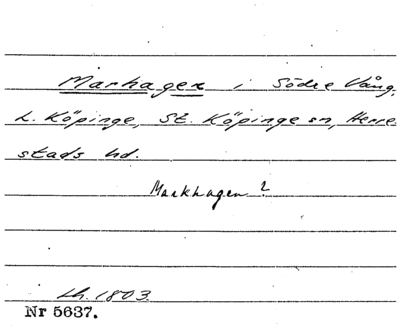 Marhagen i Södre Vång,
L. Köpinge, St. Köpinge sn, Herre-
stads hd.
Markhagen?
Lh. 1803.
Nr 5637.